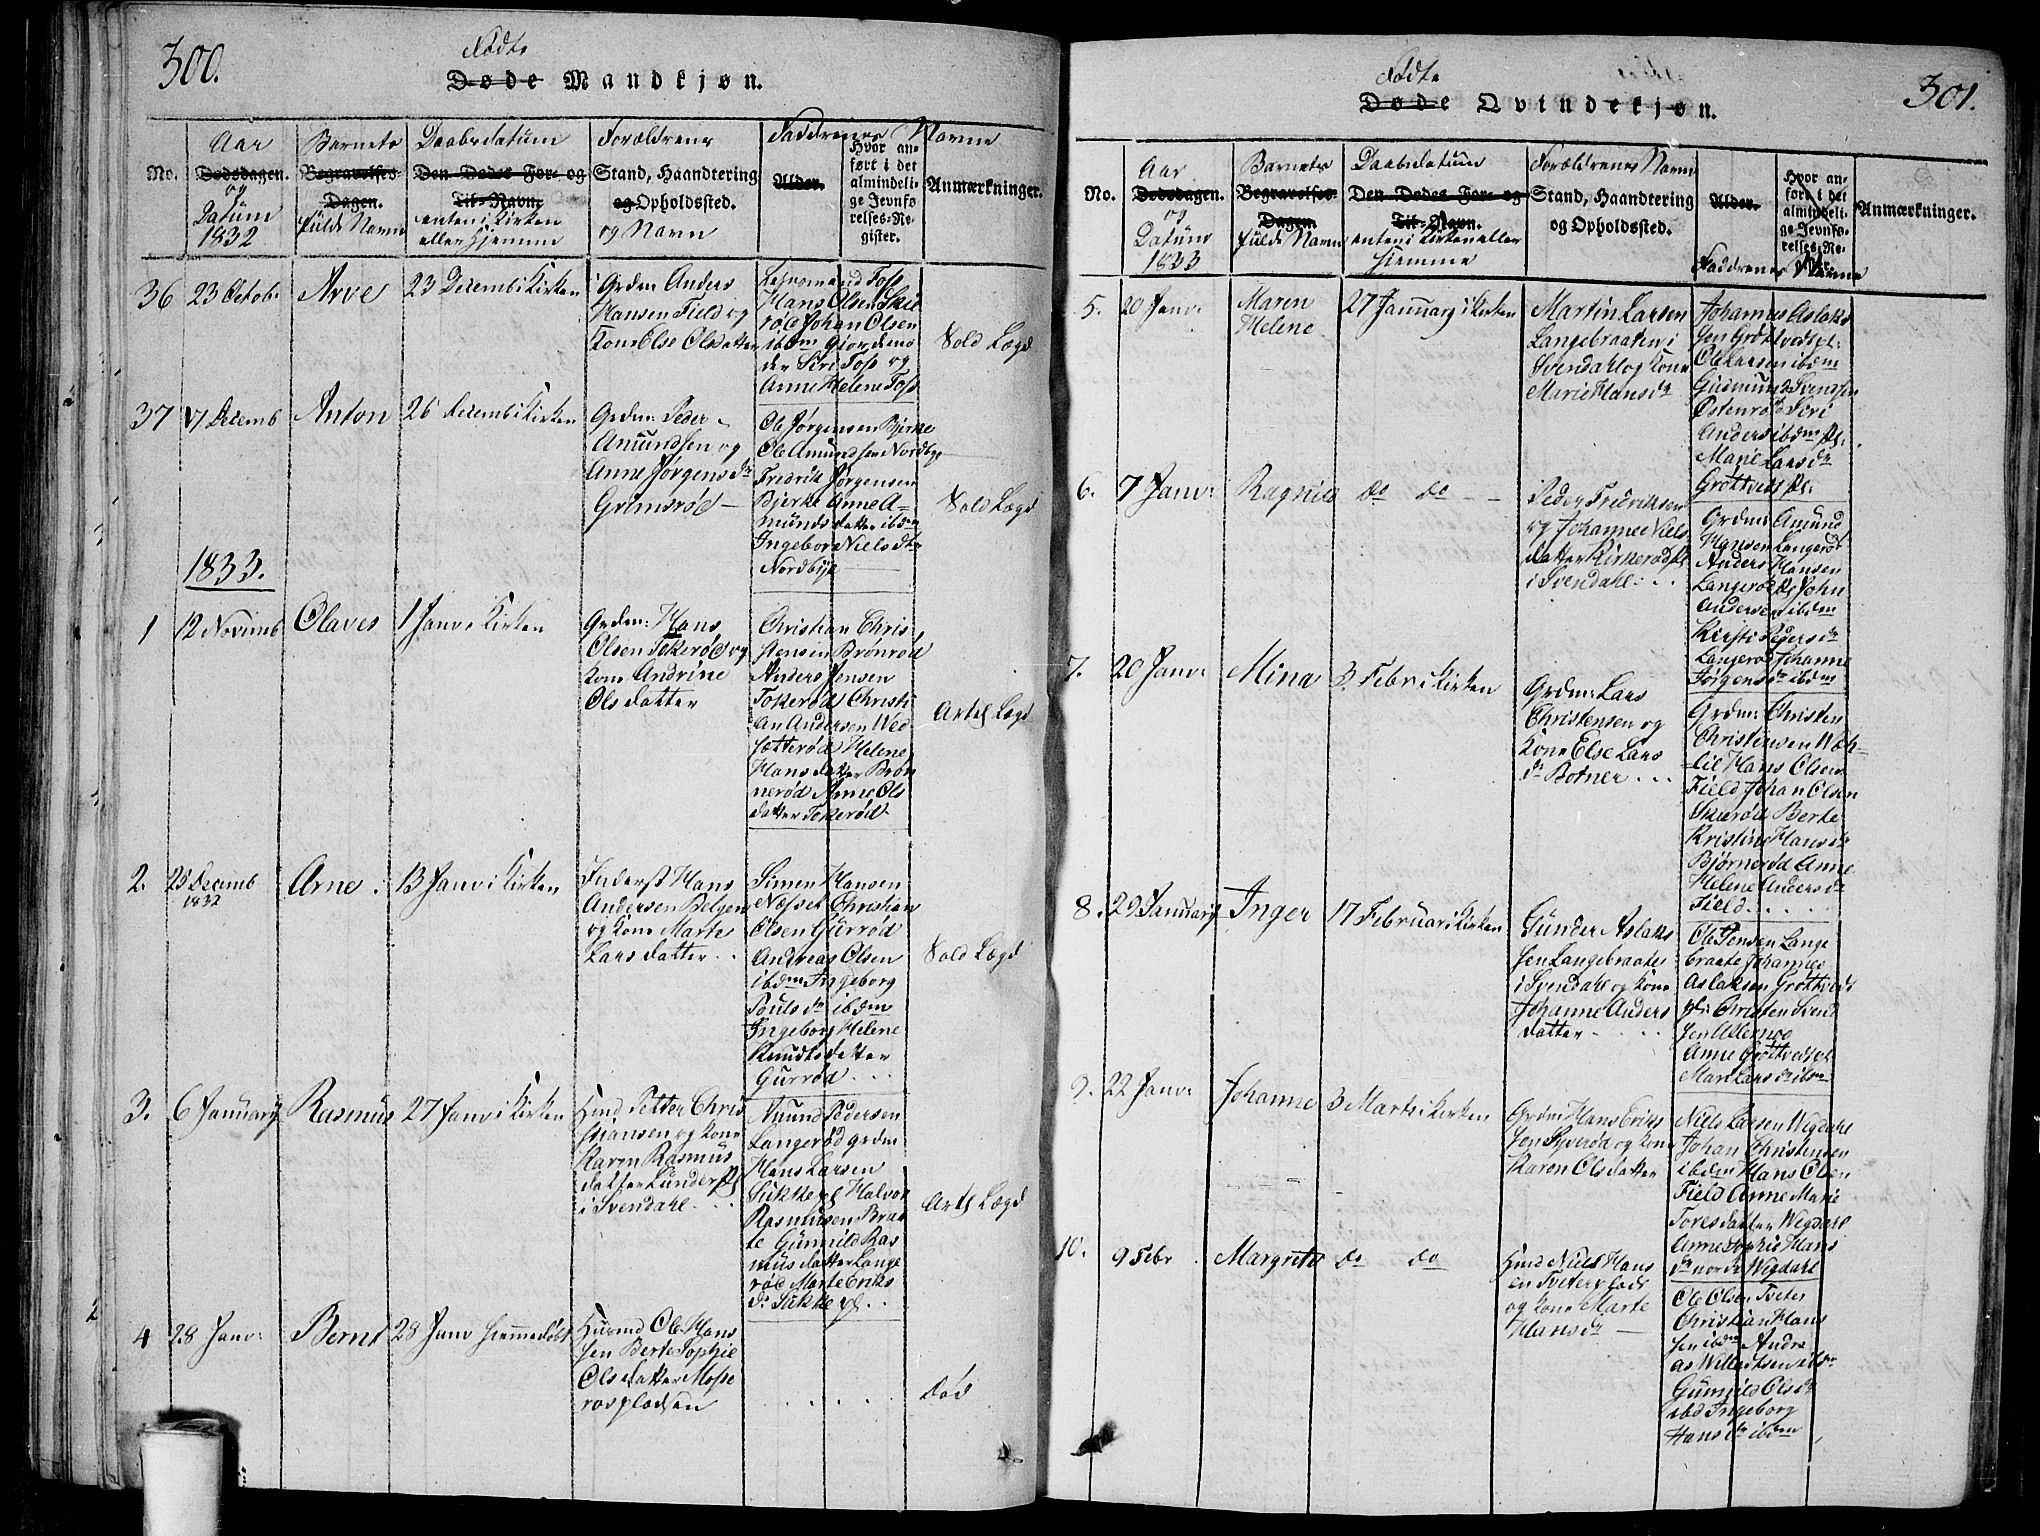 300.
Fødte
Døde Mandkjøn.
Aar
No. Dødsdagen.
og
Datum
1832
Barnets
Begravelses-
Dagen.
fulde Navn
Daabsdatum
Den Dødes For- og
Til-Navn;
enten i Kirken
eller hjemme
Forældrenes
Stand, Haandtering
og Opholdssted.
og Navn
Faddrenes Navne
Alder.
Hvor an-
ført i det
almindeli-
ge Jevnfø-
relses-Re-
gister.
Anmærkninger.
36 23 Octob: Arve 23 Decemb i Kirken
Grdm: Anders
Hansen Field og
Kone Else Olsdatter
Hans Olsen Skie
rød Johan Olsen
ibdm Giordemo
der Siri Foss og
Anne Helene Foss
Vold Lægd
37 17 Decemb Anton 26 Decemb i Kirken
Grdm: Peder
Amundsen og
Anne Jørgensdr
Grimsrød —
Ole Jørgensen Bjerke
Ole Amundsen Nordbye
Fredrik Jørgensen
Bjerke Anne A-
mundsdatter ibdm
Ingebor Nielsdtr
Nordbye
Vold Lægd
1833.
1 12 Novemb Olaves 1 Janv i Kirken
Grdm: Hans
Olsen Tokerød og
kone Andrine
Olsdatter
Christian Chris
tensen Brønrød
Anders Jensen
Tokerød Christi
an Andersen Wed
sætterød Helene
Hansdatter Brøn
nerød Anne Ols
datter Tokerød
Artel Lægd
2. 25 Decemb
1832
Arne. 13 Janv i Kirken
Inderst Hans
Andersen Belgen
og kone Marte
Larsdatter . .
Simen Hansen
Næsset Christian
Olsen Gurrød
Andreas Olsen
ibdm Ingeborg
Poulsdr ibdm
Ingeborg Helene
Knudtsdatter
Gurrød . . .
Vold Lægd
3. 6 January Rasmus 27 Janv i Kirken
Huusmd Petter Chris
tiansen og kone
Karen Rasmus
datter Lunder pl
i Svendahl . . .
Amund Pedersen
Langerød grdm
Hans Larsen
Sukke pl Halvor
Rasmusen Braa
te Gunnild Ras
musdatter Lange
rød Marte Eriks
dr Sukke pl . .
Artl Lægd
4 28 Janv: Bernt 28 Janv hjemmedøbt
Husmd Ole Hans
sen Berte Sophie
Olsdatter Mosse
rosplodsen
. . . . .
død
301.
Fødte
Døde Qvindekjøn.
Aar
No. Dødsdagen.
og
Datum
1833
Barnets
Begravelses-
Dagen.
fulde Navn
Daabsdatum
Den Dødes For- og
Til-Navn.
enten i Kirken eller
hjemme
Forældrenes Navn
Stand, Haandtering
og Opholdssted.
Alder.
Hvor an-
ført i det
almindeli-
ge Jevnfø-
relses-Re-
gister.
Faddrenes Navne
Anmærkninger.
5. 20 Janv: Maren
Helene
27 January i Kirken
Martin Larsen
Langebraaten i
Svendahl og kone
Marie Hansdr
Johannes Aslaks
sen Grøttvedt pl:
Ole Larsen ibdm
Gudmund Svendsen
Østenrød Siri
Anders ibdm pl:
Marie Larsdr
Grøttvedt pl:
6. 7 Janv: Ragnild do do - -
Peder Fredriksen
og Johanne Niels
datter Kirkerød pl
i Svendahl . . .
Grdm: Amund
Hansen Langerød
Anders Hansen
Langerød pl John
Andersen ibdm
Kirsti Pedersdr
Langerød Johanne
Jørgensdr ibdm
7. 20 Janv: Mina 3 Febr i Kirken
Grdm: Lars
Christensen og
kone Else Lars
dr Botner . . .
Grdm: Christen
Christensen Wøh-
lie Hans Olsen
Field Johan Olsen
Skierød Berte
Kristine Hansdr
Bjørnerød Anne
Helene Andersdr
Field . . . .
8. 29 January Inger 17 Februar i Kirken
Gunder Aslaks
sen Langebraaten
i Svendahl og kone
Johanne Anders
datter
Ole Jensen Lange
braate Johannes
Aslaksen Grøttvedt
pl: Christen Svend
sen Allernæs
Anne Grøttvedt pl
Mari Larsdr ibdm
9. 22 Janv: Johanne 3 Marts i Kirken
Grdm Hans Eriks
sen Syverød og kone
Karen Olsdatter
Niels Larsen Wegdahl
Johan Christensen
ibdm Hans Olsen
Field Anne Marie
Toresdatter Wegdahl
Anne Sophie Hans
dr nordre Wegdahl
10. 9 Febr. Margrete do do
Husmd Niels Hans
en Tveterplads
og kone Marte
Hansdr —
Ole Olsen Tveter
Christian Hans
sen ibdm Andre
as Willadtsen ibdm
Gunnild Olsdr
ibd Ingeborg
Hansdr ibdm